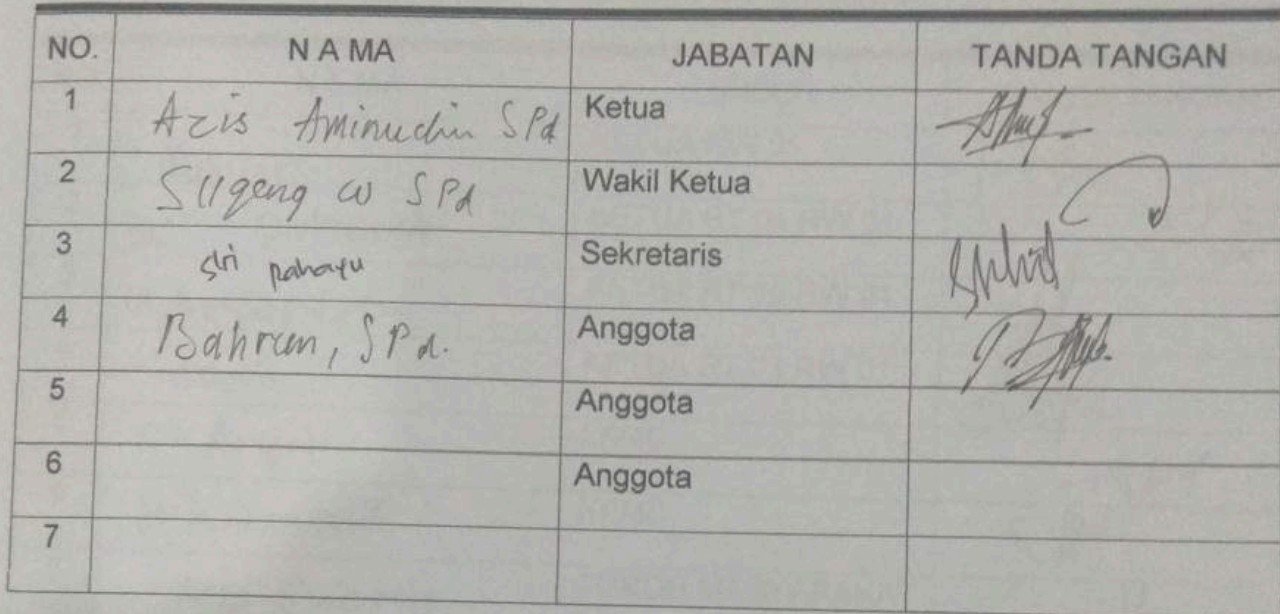 NO. NAMA JABATAN TANDA TANGAN
1 Azis Aminudin SPd Ketua
2 Sugeng W SPd Wakil Ketua
3 Sri Rahayu Sekretaris
4 Bahrun, SPd. Anggota
5 Anggota
6 Anggota
7